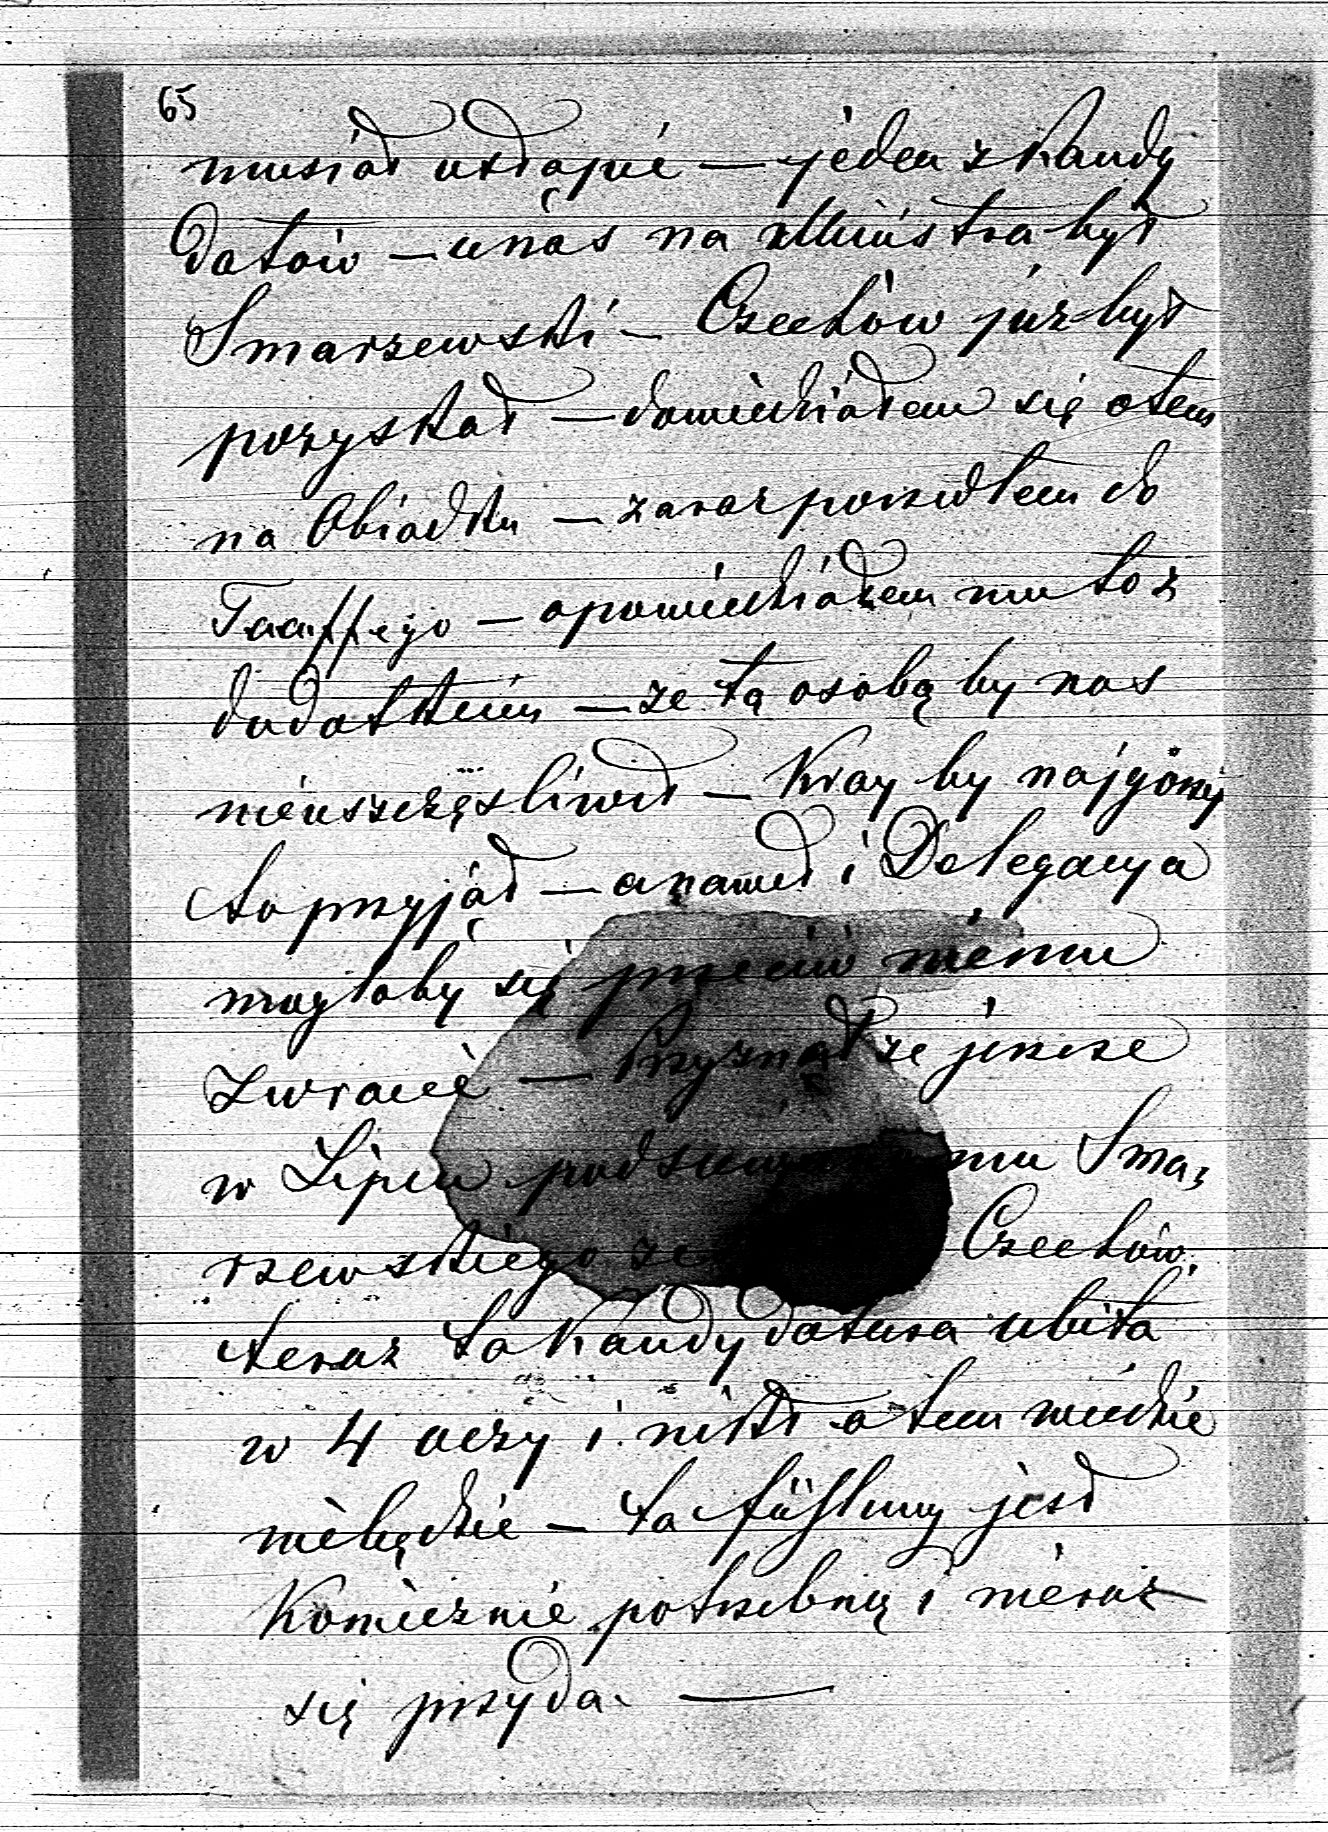 65
musiał ustąpić — jeden z kandy
datów — u nas na Ministra był
Smarzewski — Czechów już był
pozyskał — dowiedziałem się o tem
na Obiadku — zaraz poszedłem do
Taaffego — opowiedziałem mu to z
dodatkiem — ze tą osobą by nas
nieuszczęsliwił — Kray by najgorzy
to przyjął — a nawet i Delegacya
mogłaby się przeciw niemu
zwrócić — Przyznał ze jeszcze
w Lipcu mu Sma,
rzewskiego ze Czechów.
teraz ta Kandydatura ubita
w 4 oczy i nikt o tem wiedzie
niebędzie — ta fühlung jest
Koniecznie potrzebną i nieraz
się przyda. —